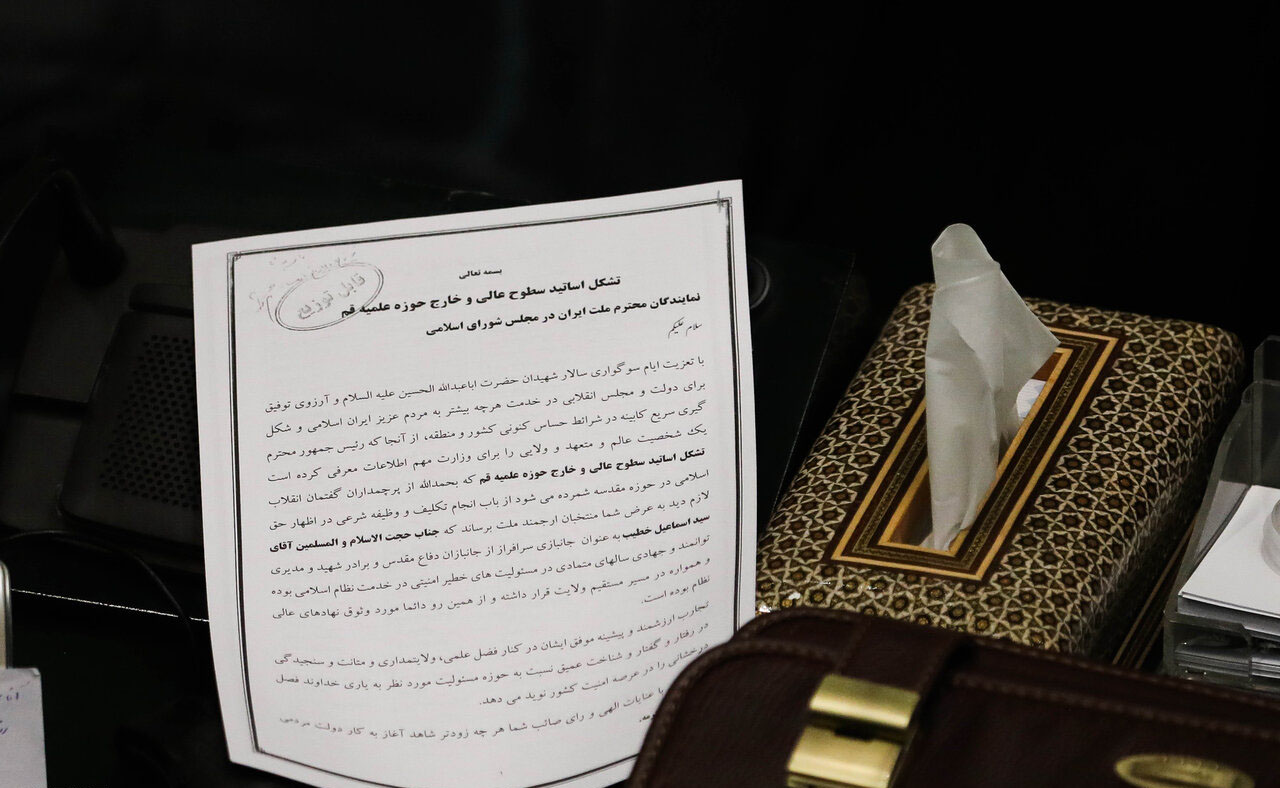 بسمه تعالی
تشکل اساتید سطوح عالی و خارج حوزه علمیه قم
قابل توزیع
نمایندگان محترم ملت ایران در مجلس شورای اسلامی
سلام علیکم
با تعزیت ایام سوگواری سالار شهیدان حضرت اباعبدالله الحسین علیه السلام و آرزوی توفیق
برای دولت و مجلس انقلابی در خدمت هرچه بیشتر به مردم عزیز ایران اسلامی و شکل
گیری سریع کابینه در شرائط حساس کنونی کشور و منطقه، از آنجا که رئیس جمهور محترم
یک شخصیت عالم و متعهد و ولایی را برای وزارت مهم اطلاعات معرفی کرده است
تشکل اساتید سطوح عالی و خارج حوزه علمیه قم که بحمدالله از پرچمداران گفتمان انقلاب
اسلامی در حوزه مقدسه شمرده می شود از باب انجام تکلیف و وظیفه شرعی در اظهار حق
لازم دید به عرض شما منتخبان ارجمند ملت برساند که جناب حجت الاسلام و المسلمین آقای
سید اسماعیل خطیب به عنوان جانبازی سرافراز از جانبازان دفاع مقدس و برادر شهید و مدیری
توانمند و جهادی سالهای متمادی در مسئولیت های خطیر امنیتی در خدمت نظام اسلامی بوده
و همواره در مسیر مستقیم ولایت قرار داشته و از همین رو دائما مورد وثوق نهادهای عالی
نظام بوده است.
تجارب ارزشمند و پیشینه موفق ایشان در کنار فضل علمی، ولایتمداری و متانت و سنجیدگی
در رفتار و گفتار و شناخت عمیق نسبت به حوزه مسئولیت مورد نظر به یاری خداوند فصل
درخشانی را در عرصه امنیت کشور نوید می دهد.
با عنایات الهی و رای صائب شما هر چه زودتر شاهد آغاز به کار دولت مردمی